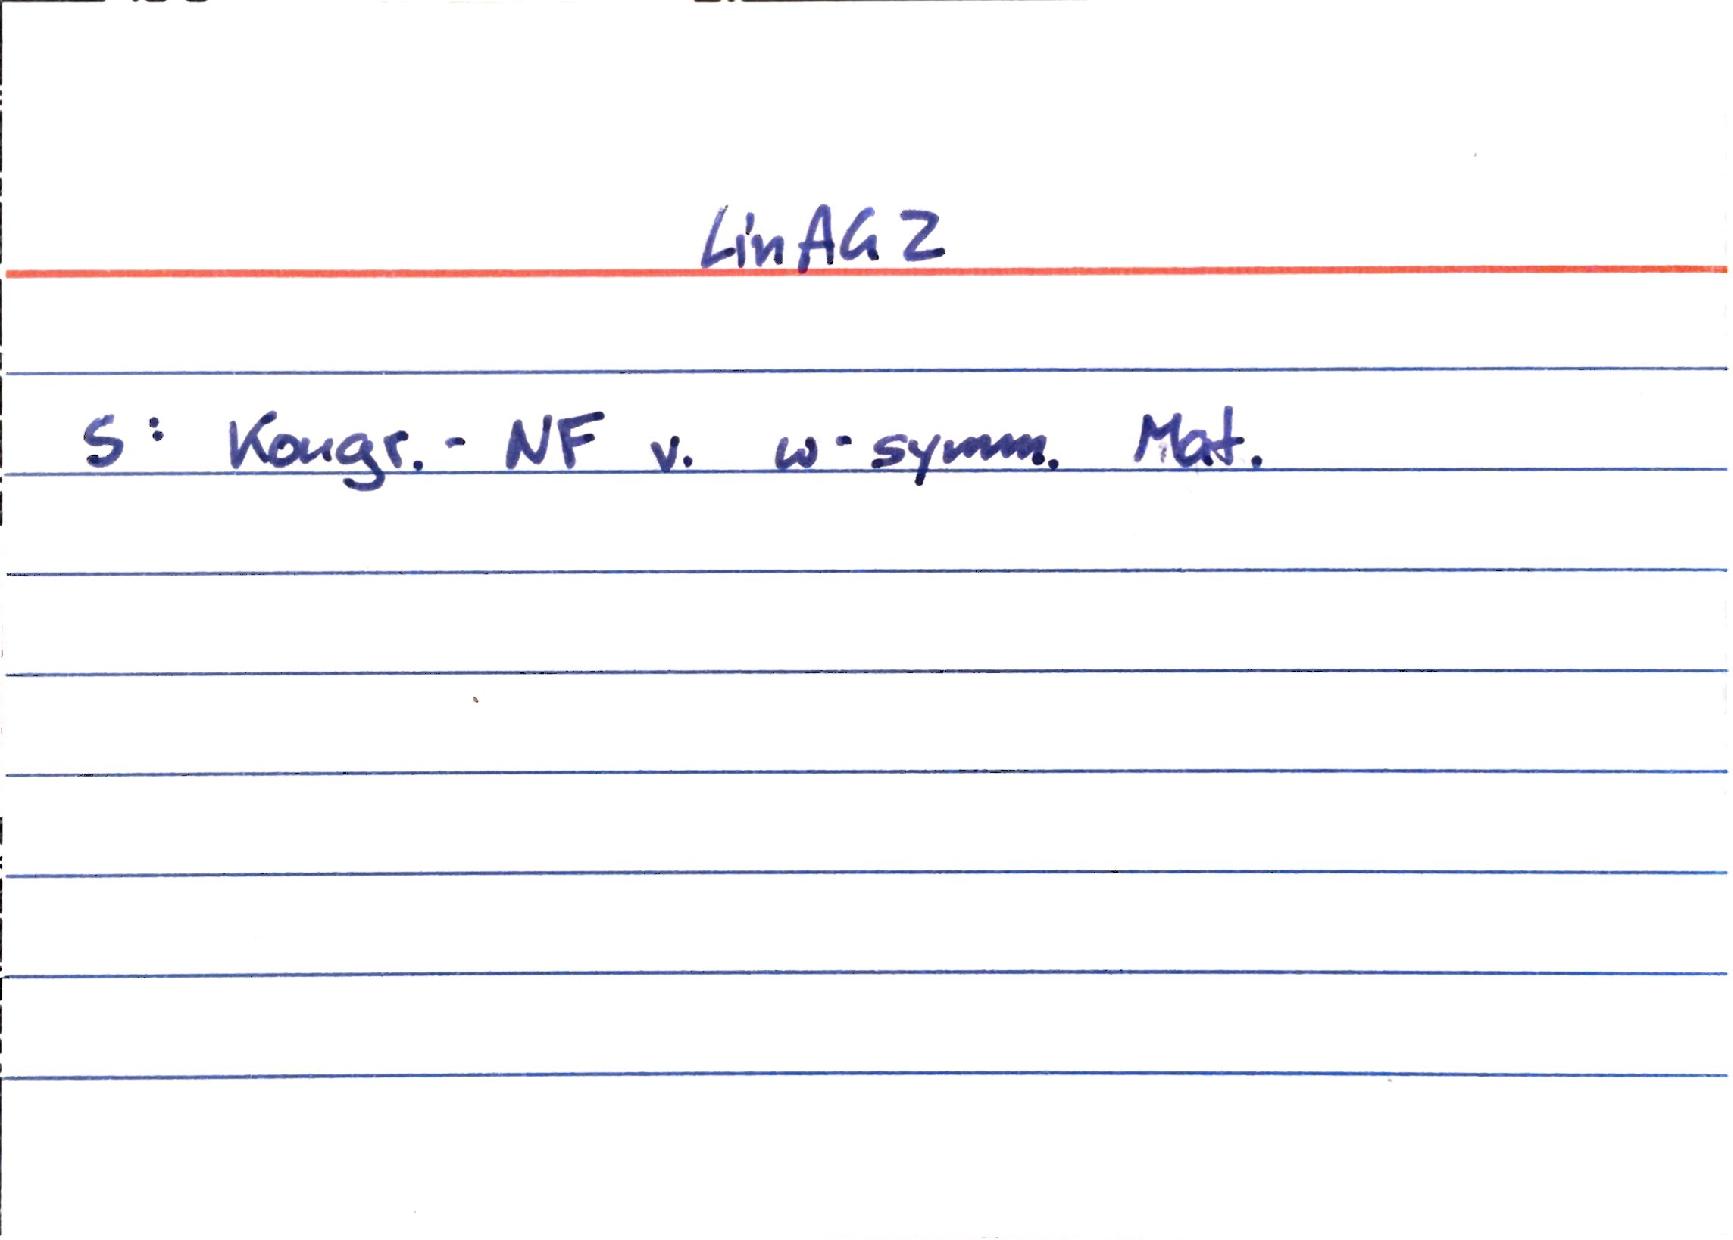 LinAG 2
S: Kongr.-NF v. w-symm. Mat.